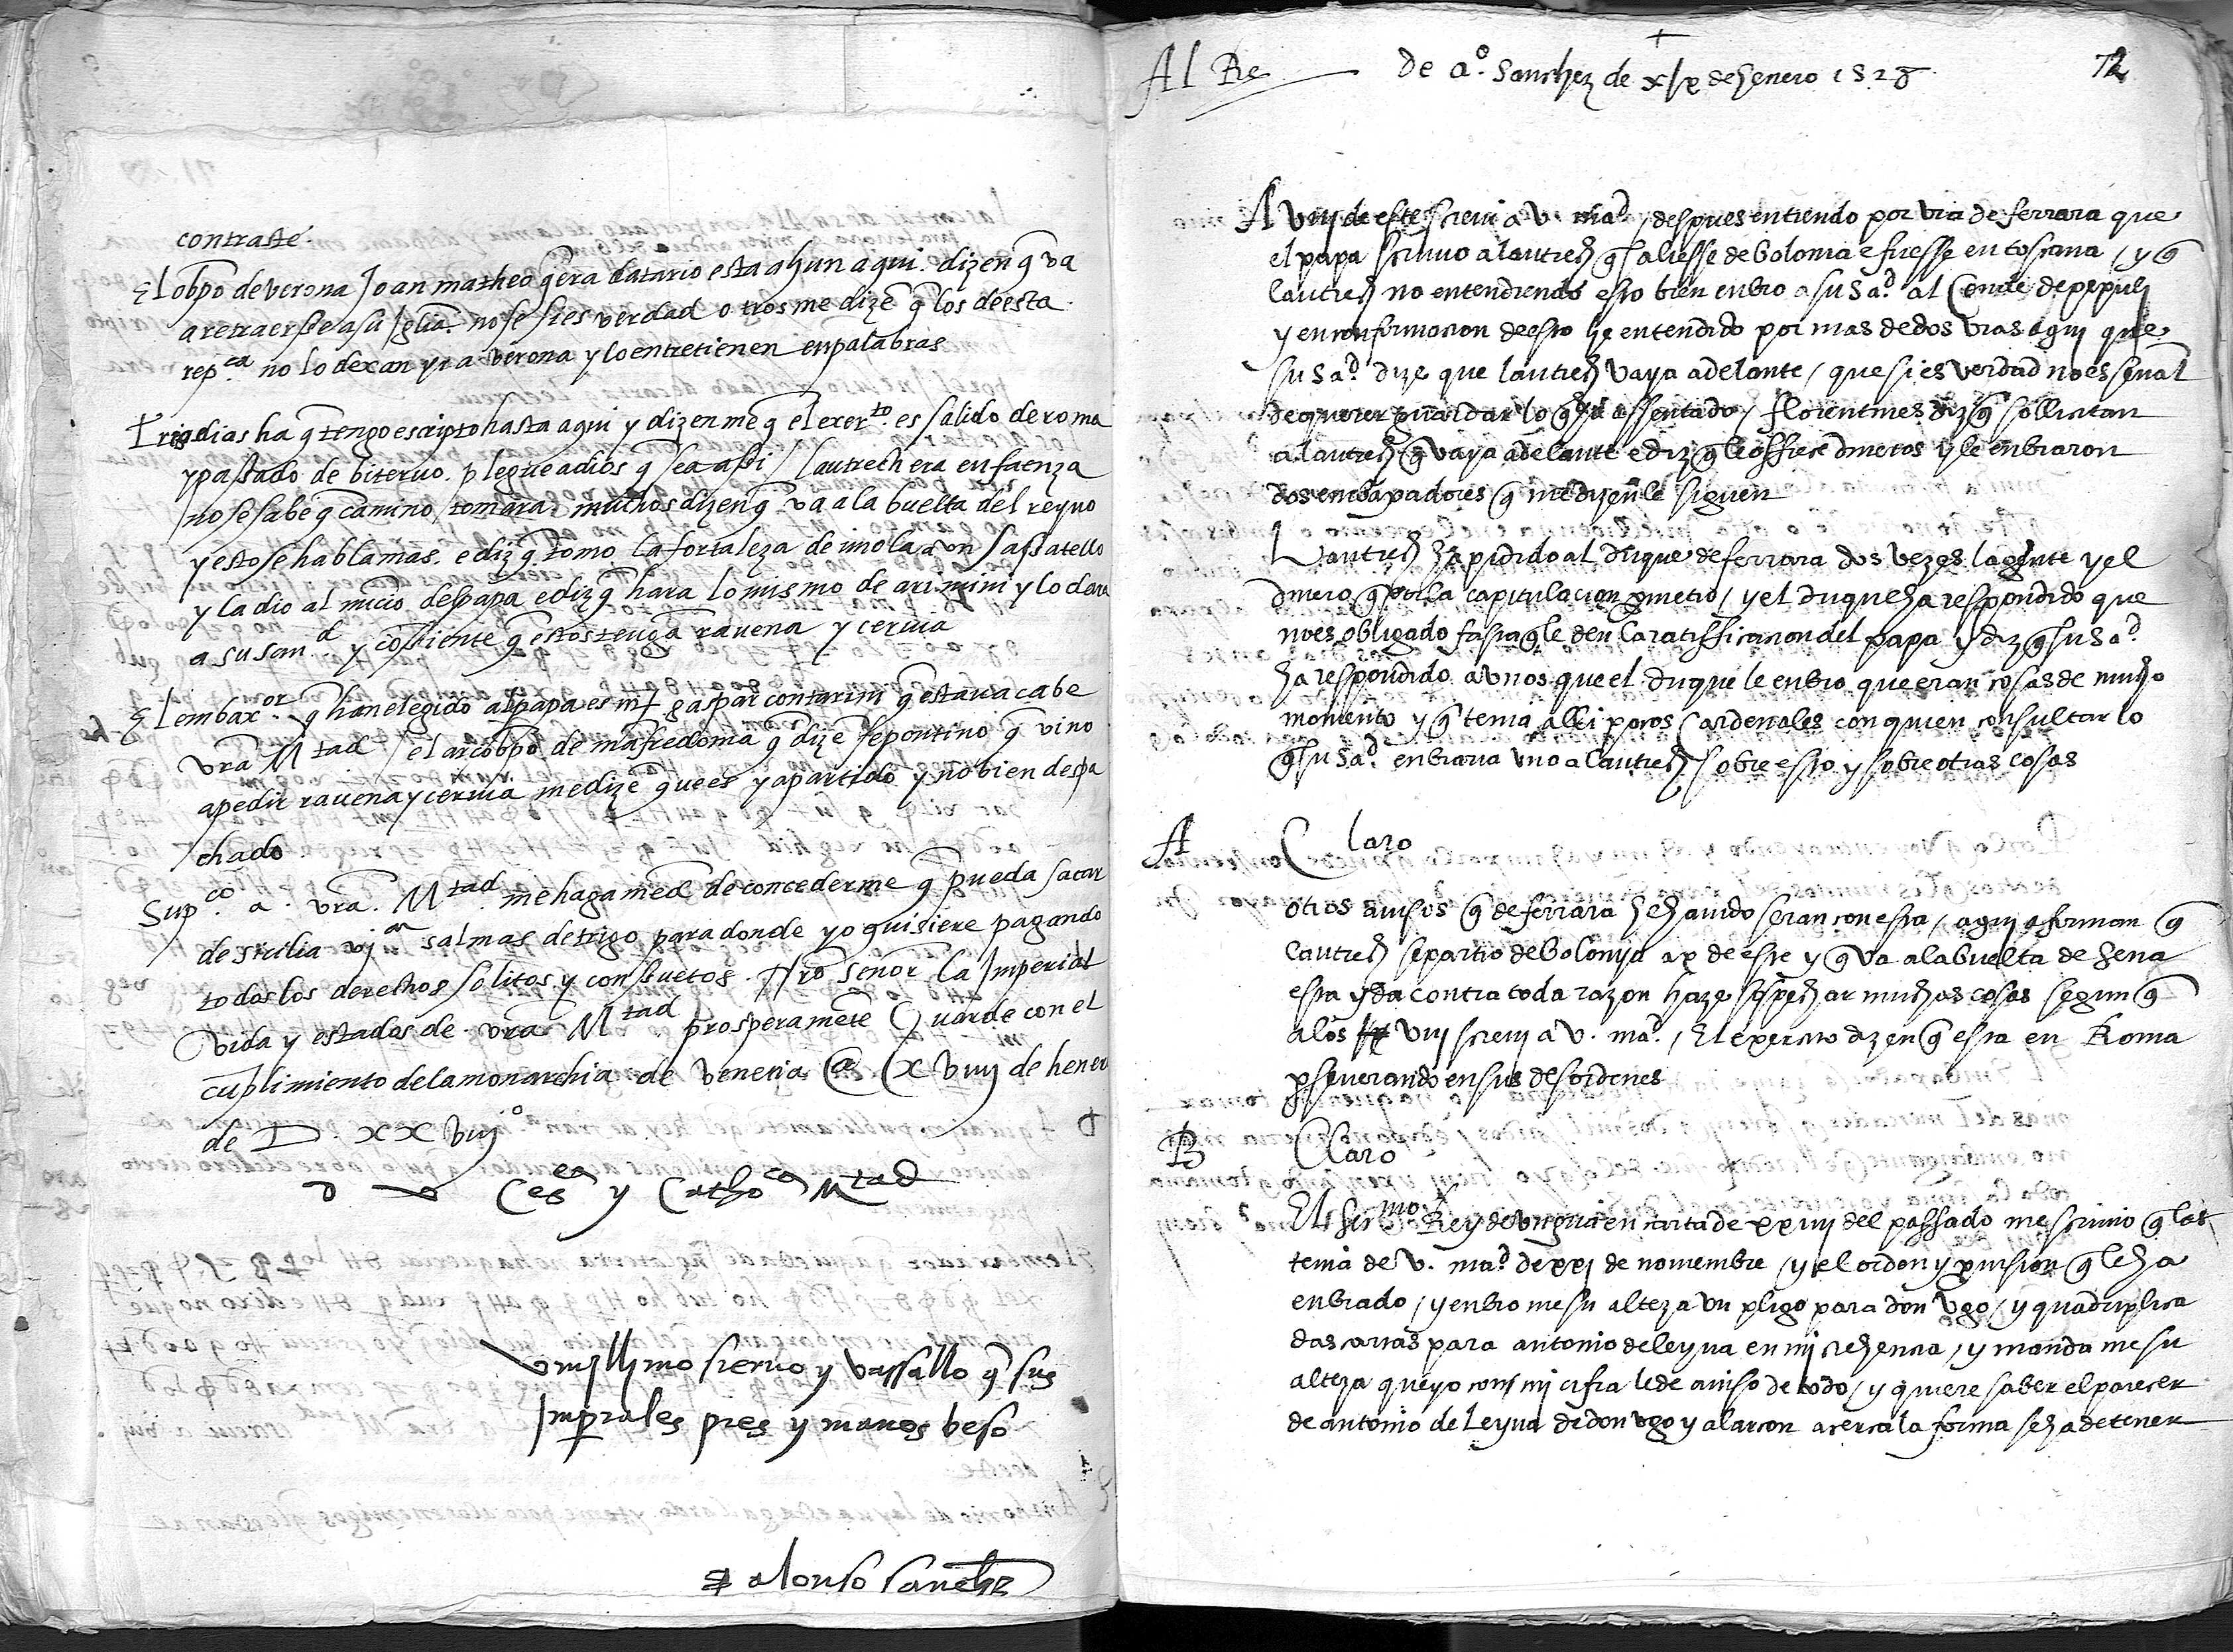 contraste.
El obpo de verona Joan matheo q̃ era datario esta ahun aqui. dizen q̃ va
a retraerse a su Iglia. no se si es verdad otros me dizẽ q̃ los de esta
rep.ca no lo dexan yr a verona y lo entretienen en palabras
Tres dias ha q̃ tengo escripto hasta aqui y dizen me q̃ el exer.to es salido de roma
y passado de biteruo. plegue a dios q̃ sea assi / lautrech era en faenza
no se sabe q̃ camino tomara. muchos dizen q̃ va a la buelta del reyno
y esto se habla mas. e diz q̃ tomo la fortaleza de imola a vn sassatello
y la dio al nũcio del papa e diz q̃ hara lo mismo de arimini y lo dara
a su san.d y cõsiente q̃ estos tengã rauena y ceruia
El embax.or q̃ han elegido al papa es m̃ gaspar contarini q̃ estaua cabe
vrã M.tad / el arcobpo de mafredonia q̃ dizẽ sepontino q̃ vino
a pedir rauena y ceruia me dizẽ que es ya partido y no bien despa
chado
Sup.co a vrã. M.tad me haga mẽd de concederme q̃ pueda sacar
de sicilia vj m salmas de trigo para donde yo quisiere pagando
todos los derechos solitos y consuetos. Nrõ señor la Imperial
vida y estados de vrã M.tad prosperamẽte Guarde con el
cũplimiento de la monarchia de venecia @ (x viij de henero
de D. xx viij°
D v Ces.ea y Catho.ca M.tad
vmillimo sieruo y vassallo q̃ sus
Imperiales pies y manos beso
alonso sanchez
Al Re de A.° Sanchez de xix de henero 1528 72
A viij de este screui a V. mad / despues entiendo por via de ferrara que
el papa scriuio a lautrech q̃ saliesse de bolonia e fuesse en toscana / y q̃
lautrech no entendiendo esto bien enbio a su Sa.d al Conde de pepuli
y en confirmacion de esto he entendido por mas de dos vias aqui que
su Sa.d dize que lautrech vaya adelante / que si es verdad no es señal
de querer guardar lo q̃ ha assentado / florentines diz q̃ sollicitan
a lautrech q̃ vaya adelante e diz q̃ le offrece dineros y le enbiaron
dos embaxadores q̃ me dizen le siguen
Lautrech ha pidido al duque de ferrara dos vezes la gente y el
dinero q̃ por la capitulacion pmetio / y el duque ha respondido que
no es obligado fasta q̃ le den la ratifficacion del papa y diz q̃ su Sa.d
ha respondido a vnos que el duque le enbio que eran cosas de mucho
momento y q̃ tenia alli pocos Cardenales con quien consultarlo
q̃ su Sa.d enbiaria vno a lautrech sobre esto y sobre otras cosas
A Claro
otros auisos q̃ de ferrara he hauido seran con esta / aqui afirman q̃
lautrech se partio de bolonya a x de este y q̃ va a la buelta de Sena
esta yda contra toda razon haze sospechar muchas cosas segun q̃
a los viij screui a V. ma.d / El exercito dizen q̃ esta en Roma
pseuerando en sus desordenes
B Claro
El Ser.mo Rey de vngria en carta de xxiiij del passado me scriuio q̃ las
tenia de V. ma.d de xxj de nouiembre / y el orden y prouision q̃ le ha
enbiado / y enbio me su alteza vn pligo para don vgo / y quadruplica
das cartas para antonio de leyua en mi creencia / y manda me su
alteza que yo con mi cifra le de auiso de todo / y quiere saber el parecer
de antonio de Leyua de don vgo y alarcon acerca la forma se ha de tener